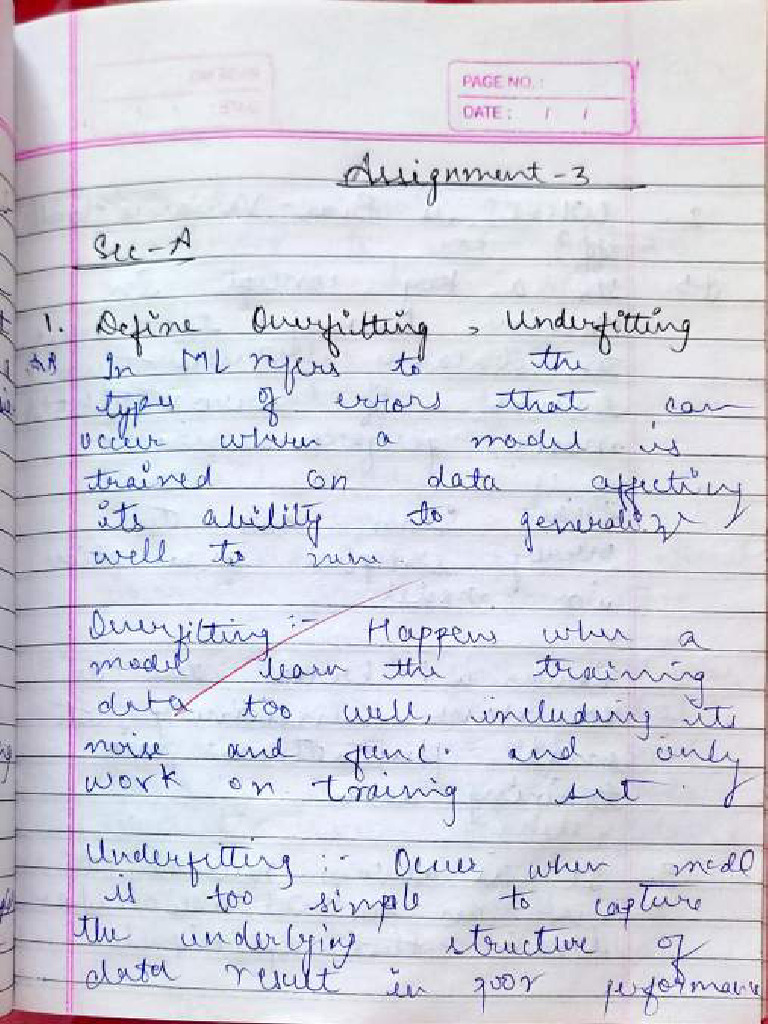 PAGE NO. :
DATE : / /
Assignment - 3
Sec - A
1. Define Overfitting , Underfitting
In ML refers to the
types of errors that can
occur when a model is
trained on data affecting
its ability to generalize
well to
Overfitting :- Happens when a
model learn the training
data too well, including its
noise and func. and only
work on training set
Underfitting :- Occur when model
is too simple to capture
the underlying structure of
data result in poor performance